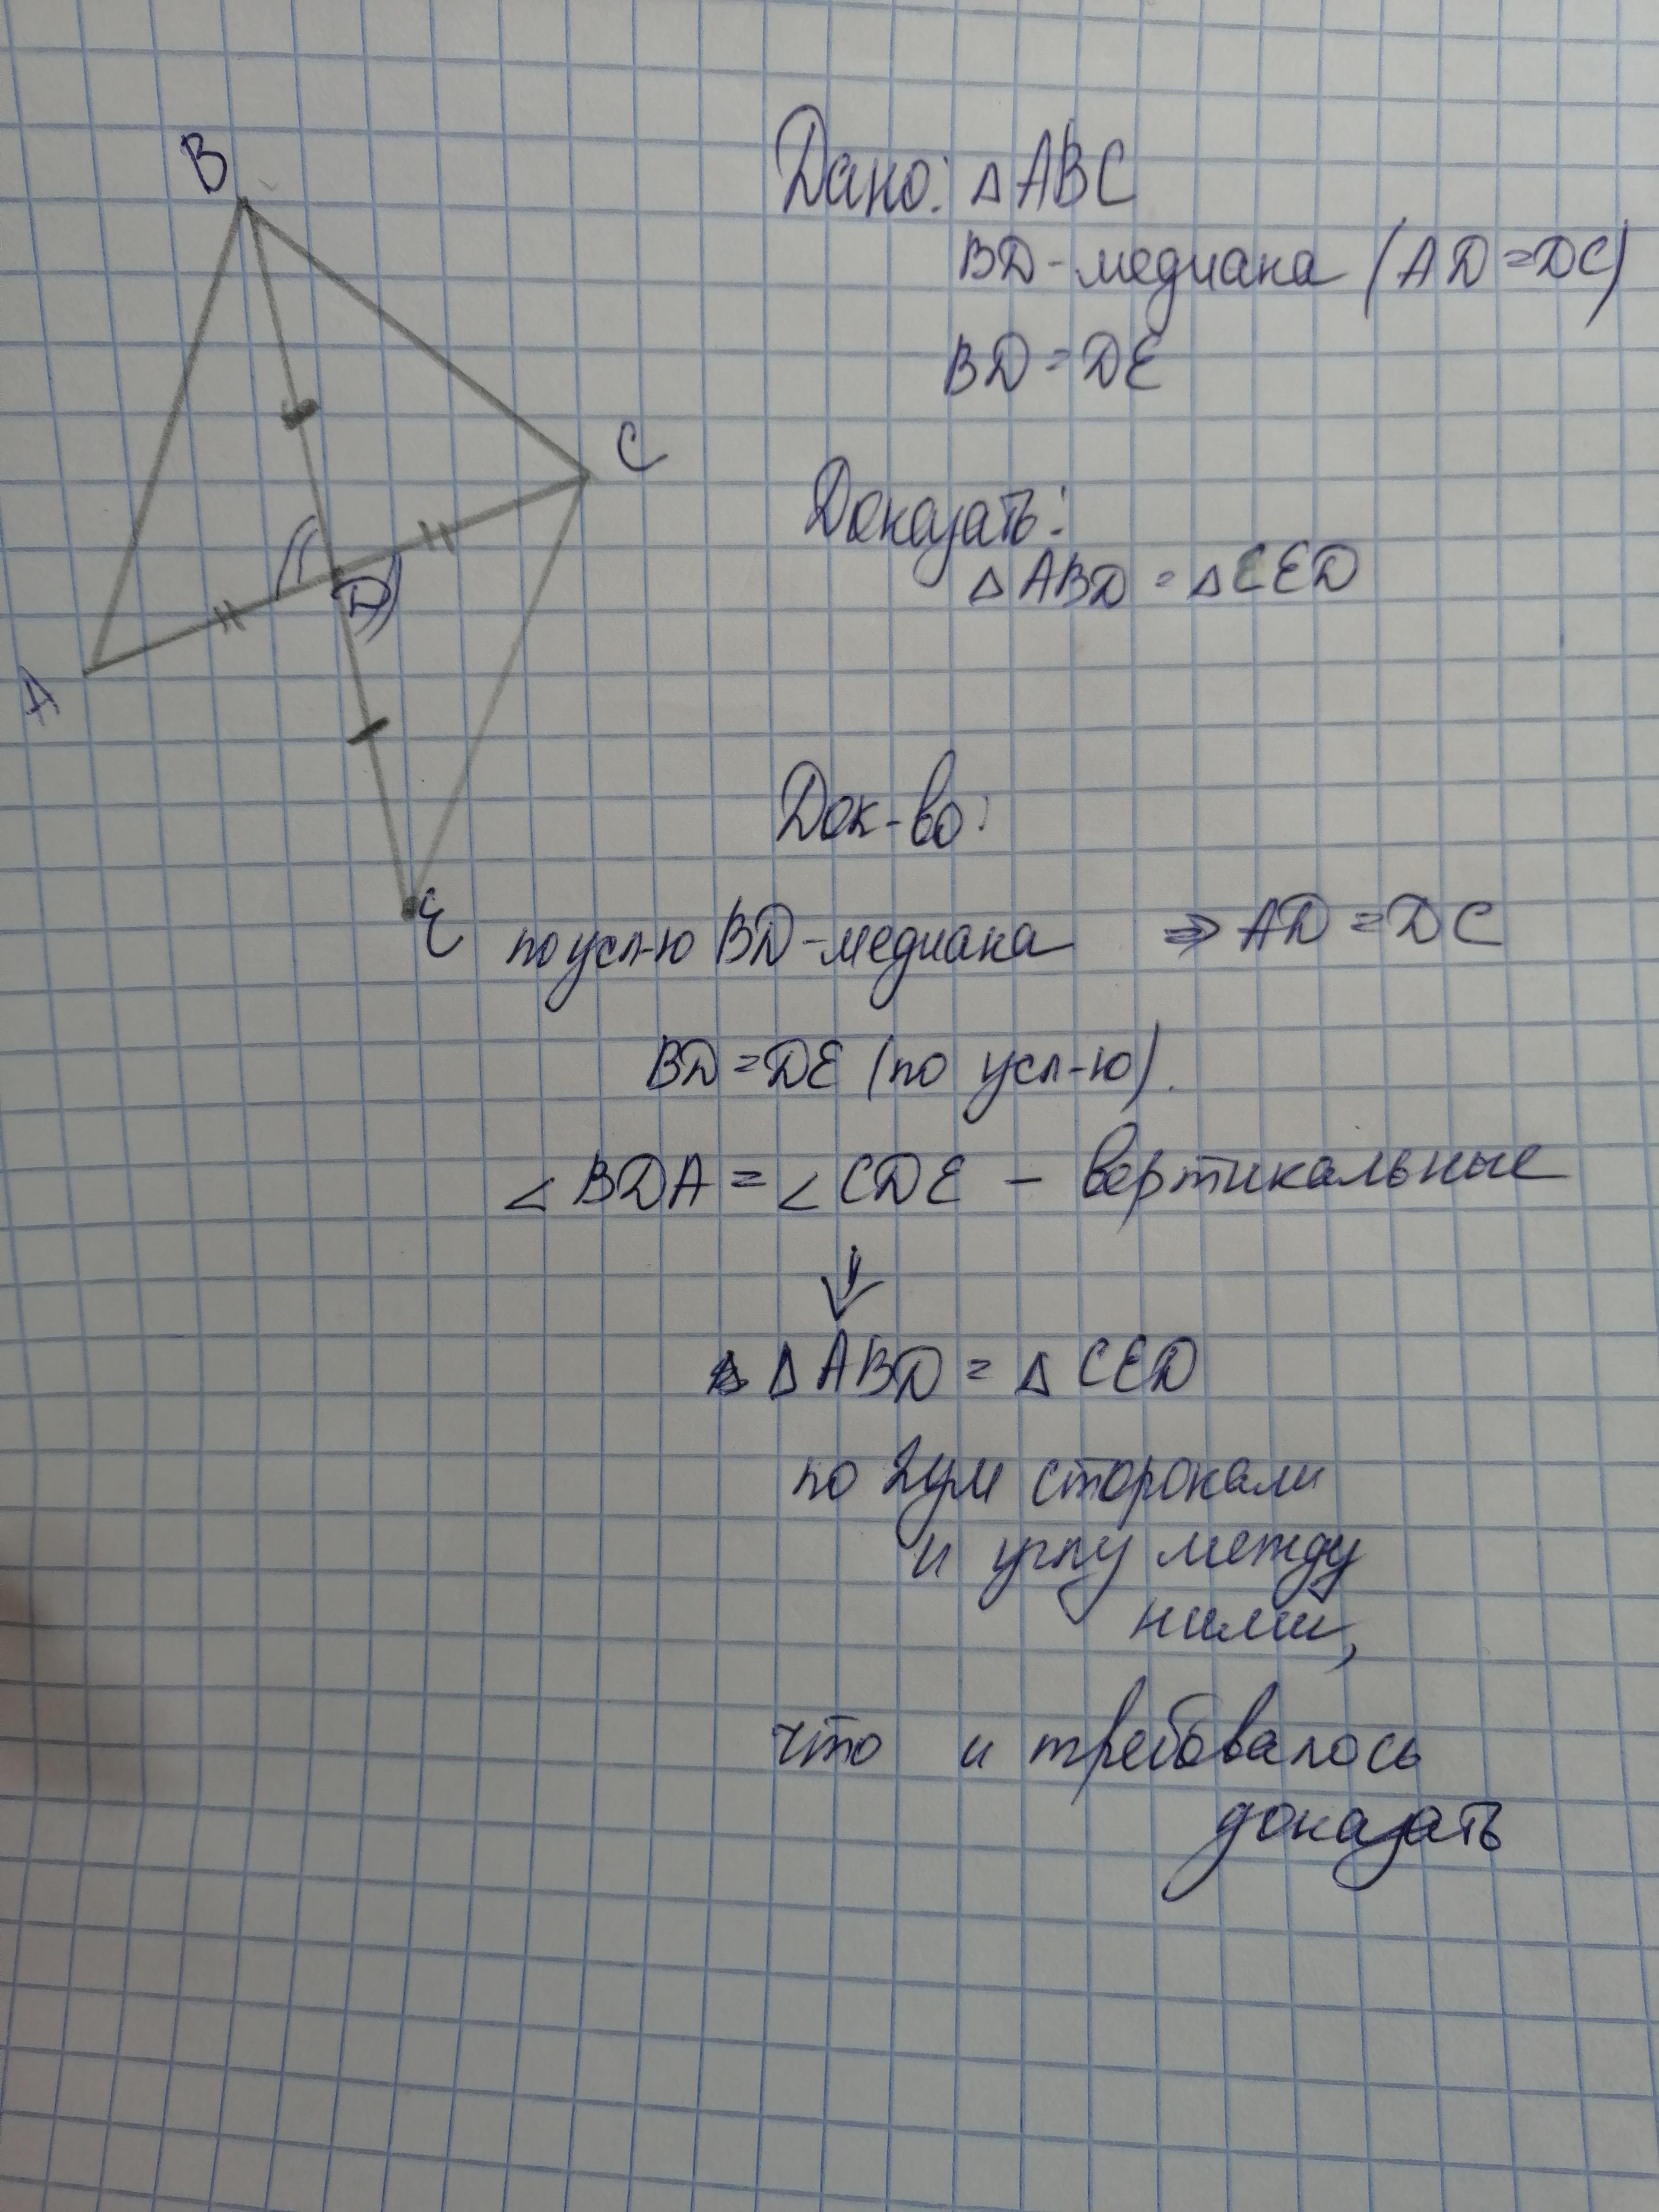 B
Дано: △ABC
BD-медиана (AD=DC)
BD=DE
C
Доказать:
△ABD = △CED
D
A
Док-во:
E
по усл-ю BD-медиана ⇒ AD=DC
BD=DE (по усл-ю).
∠BDA = ∠CDE – вертикальные
⇓
△ABD = △CED
по 2ум сторонам
и углу между
ними,
что и требовалось
доказать